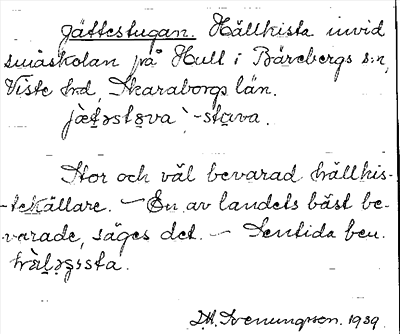 Jättestugan. Hällkista invid
småskolan på Hull i Bärebergs s:n,
Viste hd, Skaraborgs län.
jæ̀t̬əst̬ɞva `-stɞva.
Stor och väl bevarad hällkis-
-tekällare. — En av landets bäst be-
varade, säges det. — Sentida ben.
D.H. Svenungsson. 1939.